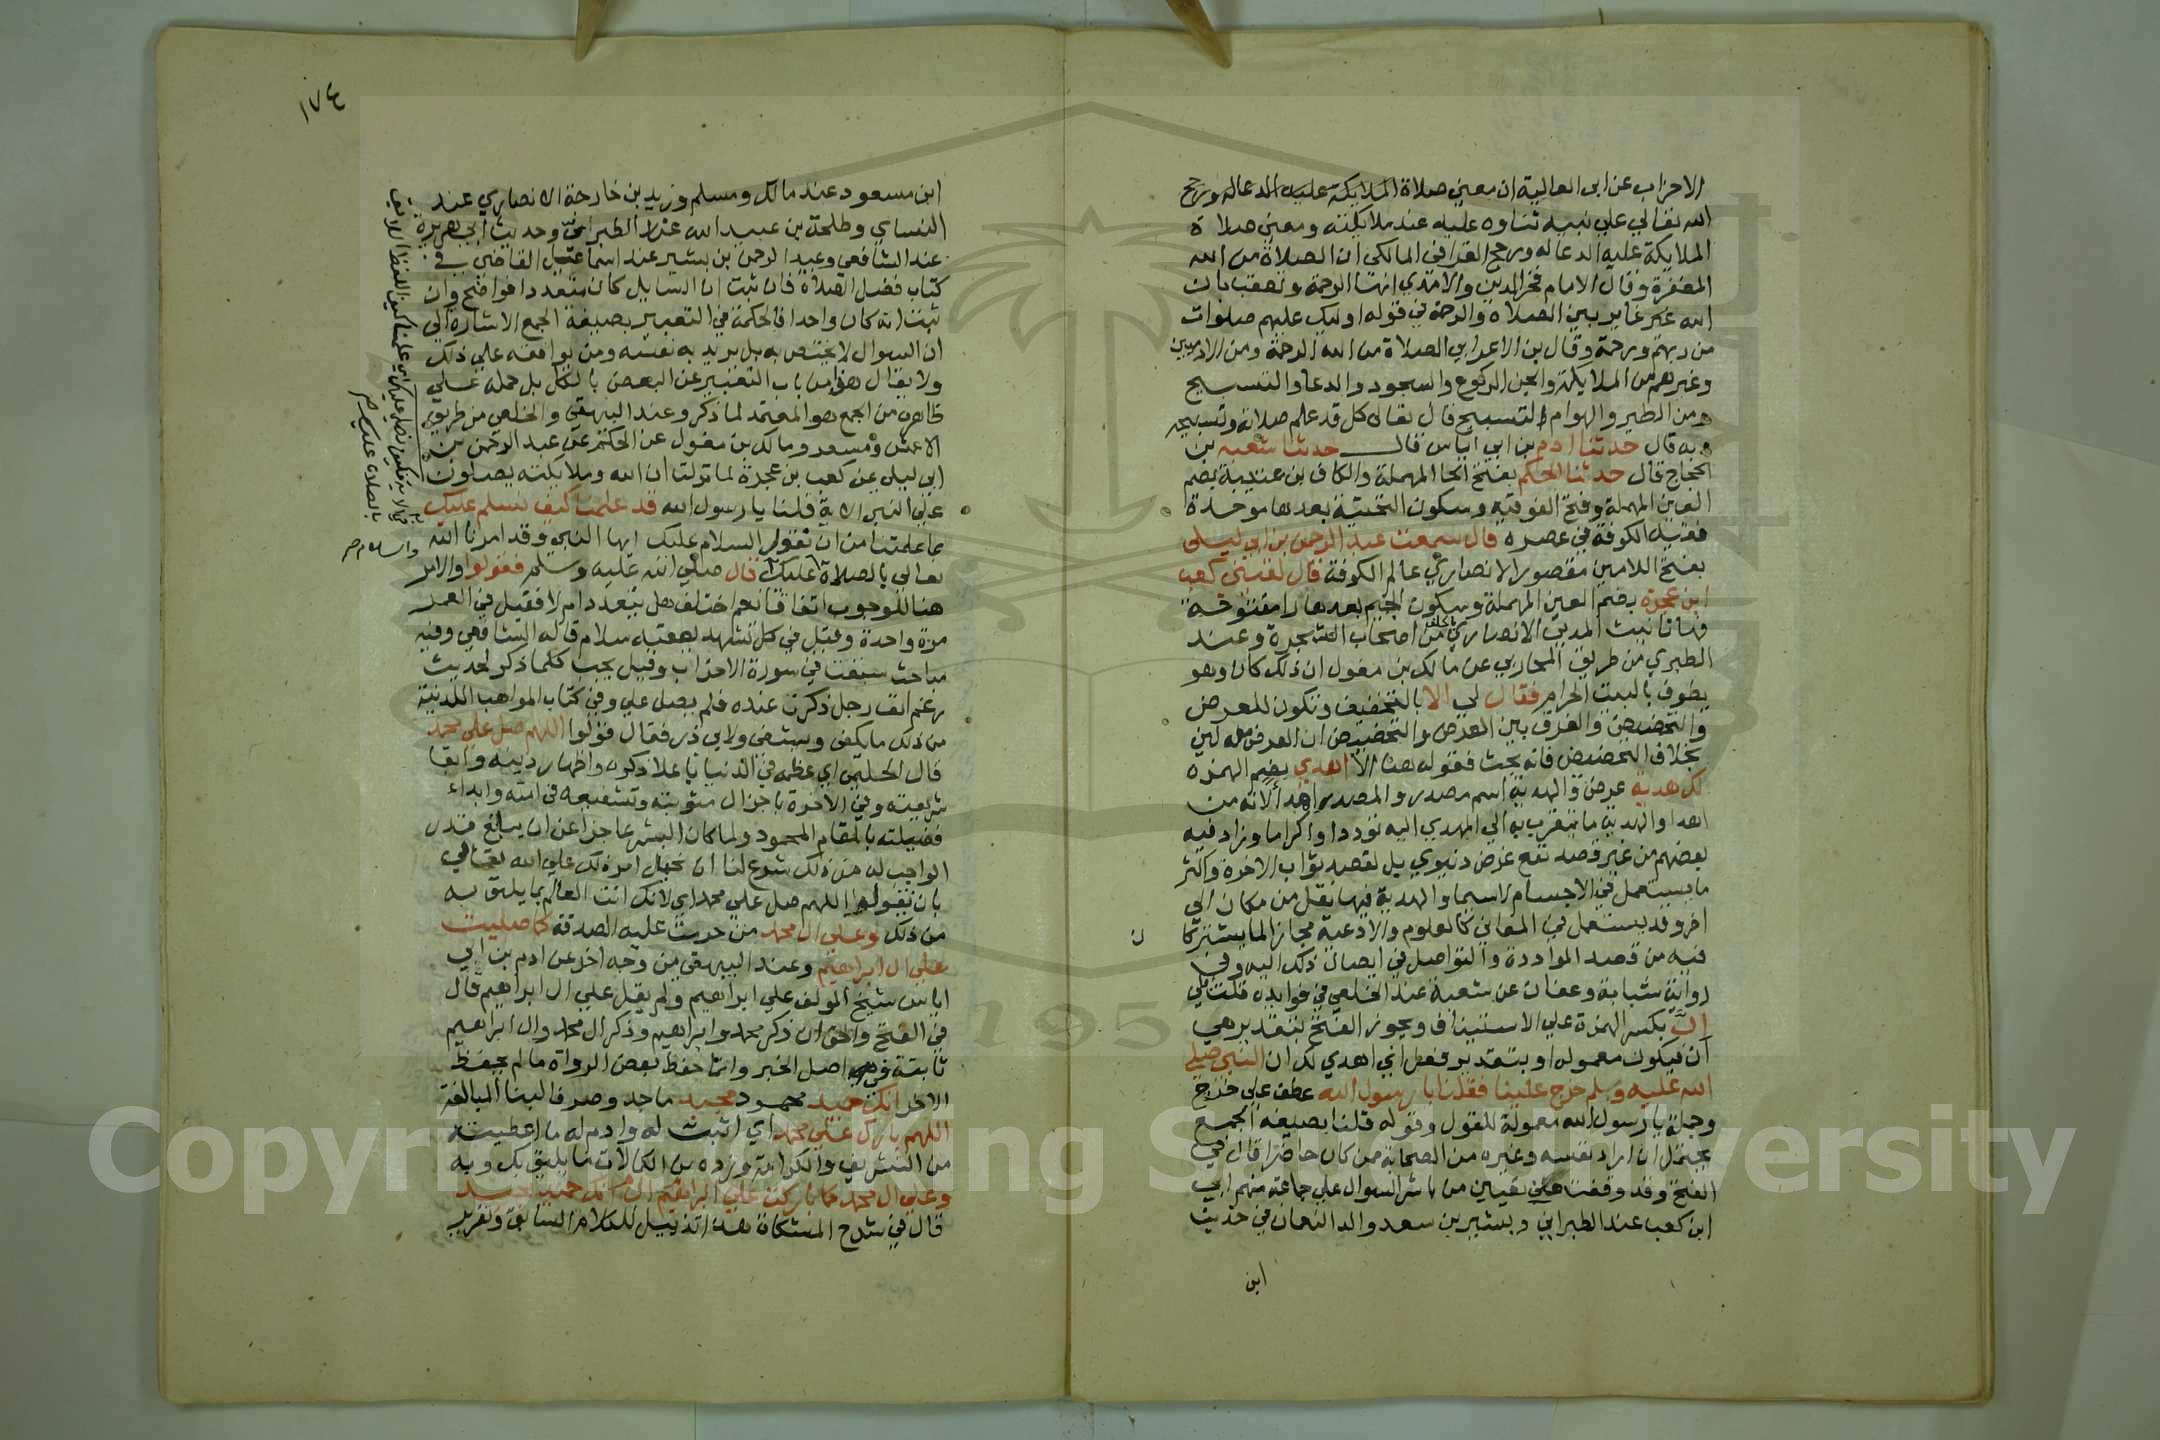 الاحزاب عن ابى العالية ان معنى صلاة الملايكة عليه الدعاله ورجح
الله تعالي علي نبيه ثناوه عليه عند ملايكته ومعنى صلاة
الملايكة عليه الدعا له ورجح القرافى المالكى ان الصلاة من الله
المغفرة وقال الامام فخر الدين والامدي انها الرحمة وتعقب بان
الله غاير بين الصلاة والرحمة في قوله اوليك عليهم صلوات
من ربهم ورحمة وقال بن الاعرابي الصلاة من الله الرحمة ومن الادميين
وغيرهم من الملايكة والجن الركوع والسجود والدعا والتسبيح
ومن الطير والهوام التسبيح قال تعالى كل قد علم صلاته وتسبيحه
وبه قال حدثنا ادم بن ابي اياس قال حدثنا شعبه بن
الحجاج قال حدثنا الحكم بفتح الحا المهملة والكاف بن عتيبة بضم
العين المهملة وفتح الفوقيه وسكون التحتية بعدها موحدة
فقيه الكوفة في عصره قال سمعت عبد الرحمن بن ابي ليلى
بفتح اللامين مقصور الانصاري عالم الكوفة قال لقيني كعب
ابن عجرة بضم العين المهملة وسكون الجيم بعدها را مفتوحة
فها تانيث المدني الانصاري من اصحاب الشجرة وعند
الطبري من طريق المحاربي عن مالك بن مغول ان ذلك كان وهو
يطوف بالبيت الحرام فقال لي الا بالتخفيف وتكون للعرض
والتحضيض والفرق بين العرض والتحضيض ان العرض معه لين
بخلاف التحضيض فانه بحث فقوله هنا الا اهدي بضم الهمزه
لك هدية عرض والهدية اسم مصدر والمصدر اهدا لانه من
اهدا والهدية ما يتقرب به الي المهدي اليه توددا واكراما وزاد فيه
بعضهم من غير قصد نفع عوض دنيوي بل لقصد ثواب الاخرة واكثر
ما يستعمل في الاجسام لاسيما والهدية فيها نقل من مكان الى
اخر وقد يستعمل في المعاني كالعلوم والادعية مجاز الما يشتركا
فيه من قصد الموادة والتواصل في ايصال ذلك اليه وفي
رواية شبابة وعفان عن شعبة عند الخلعي في فوايده قلت بلي
ان بكسر الهمزة علي الاستيناف ويجوز الفتح بتقدير هي
ان فيكون معموله او بتقدير فعل اني اهدي لك ان النبي صلي
الله عليه وسلم خرج علينا فقلنا يا رسول الله عطف علي خرج
وجملة يا رسول الله معمولة للقول وقوله قلنا بصيغة الجمع
يحتمل ان اراد نفسه وغيره من الصحابة ممن كان حاضرا قال في
الفتح وقد وقفت علي تعيين من باشر السوال علي جماعة منهم ابي
ابن كعب عند الطبراني وبشير بن سعد والد النعمان في حديث
ابن
١٧٤
ابن مسعود عند مالك ومسلم وزيد بن خارجة الانصاري عند
النساي وطلحة بن عبيد الله عند الطبراني وحديث ابي هريرة
عند الشافعي وعبد الرحمن بن بشير عند اسماعيل القاضي في
كتاب فضل الصلاة فان ثبت ان السايل كان متعددا فواضح وان
ثبت انه كان واحدا فالحكمة في التعبير بصيغة الجمع الاشارة الي
ان السوال لا يختص به بل يريد به نفسه ومن يوافقه علي ذلك
ولا يقال هو من باب التعبير عن البعض بالكل بل حمله علي
ظاهره من الجمع هو المعتمد لما ذكر وعند البيهقي والخلعي من طريق
الاعمش ومسعر ومالك بن مغول عن الحكم عن عبد الرحمن بن
ابي ليلي عن كعب بن عجرة لما نزلت ان الله وملايكته يصلون
علي النبي الاية قلنا يا رسول الله قد علمنا كيف نسلم عليك
بما علمتنا من ان نقول السلام عليك ايها النبي وقد امرنا الله
تعالى بالصلاة عليك قال صلي الله عليه وسلم فقولوا والامر
هنا للوجوب اتفاقا نعم اختلف هل يتعدد ام لا فقيل في العمر
مرة واحدة وقيل في كل تشهد يعقبه سلام قاله الشافعي وفيه
مباحث سبقت في سورة الاحزاب وقيل يجب كلما ذكر لحديث
رغم انف رجل ذكرت عنده فلم يصل علي وفي كتاب المواهب اللدنية
من ذلك ما يكفي ويشفي ولابي ذر فقال قولوا اللهم صل علي محمد
قال الحليمي اي عظمه في الدنيا باعلا ذكره واظهار دينه وابقا
شريعته وفي الاخرة باجزال مثوبته وتشفيعه فى امته وابداء
فضيلته بالمقام المحمود ولما كان البشر عاجزا عن ان يبلغ قدر
الواجب له من ذلك شرع لنا ان نحيل امر ذلك علي الله تعالي
بان نقول اللهم صل علي محمد اي لانك انت العالم بما يليق به
من ذلك وعلى ال محمد من حرمت عليه الصدقة كما صليت
علي ال ابراهيم وعند البيهقي من وجه اخر عن ادم بن ابي
اياس شيخ المولف علي ابراهيم ولم يقل علي ال ابراهيم قال
في الفتح والحق ان ذكر محمد وابراهيم وذكر ال محمد وال ابراهيم
ثابتة في اصل الخبر وانما حفظ بعض الرواة ما لم يحفظ
الاخر انك حميد محمود مجيد ماجد وصرفا لبنا المبالغة
اللهم بارك علي محمد اي اثبت له وادم له ما اعطيته
من التشريف والكرامة وزده من الكمالات ما يليق بك وبه
وعلي ال محمد كما باركت علي ابراهيم انك حميد مجيد
قال في شرح المشكاة هذا تذييل للكلام السابق وتقرير
Copyright © King Saud University
1957